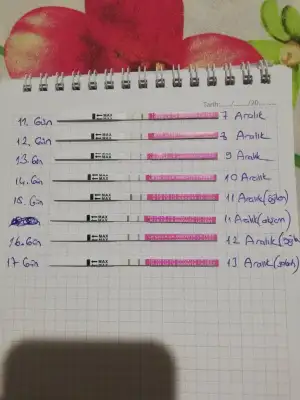 Tarih: / /20
11. Gün MAX MAX 7 Aralık
12. Gün MAX MAX 8 Aralık
13. Gün MAX MAX 9 Aralık
14. Gün MAX MAX 10 Aralık
15. Gün MAX MAX 11 Aralık (öğlen)
MAX MAX 11 Aralık (akşam)
16. Gün MAX MAX 12 Aralık
17. Gün MAX MAX 13 Aralık (sabah)